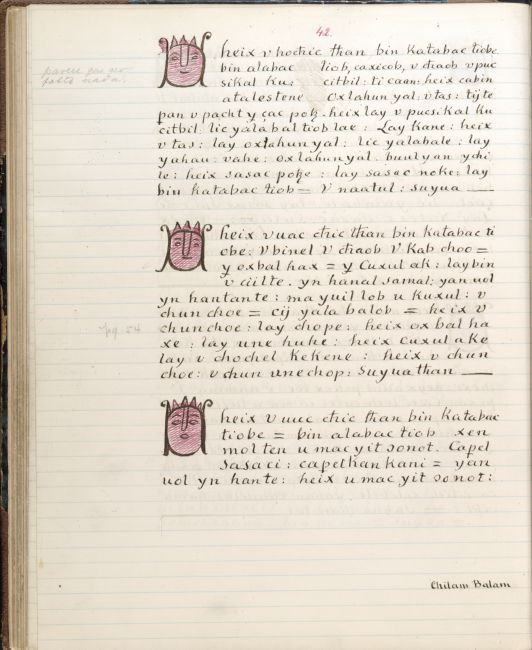 42.
heix v hochic than bin Katabac tiobe
bin alabac tiob, caxicob, v chaob v puc
sikal ku: citbil: ti caan: heix cabin
atalestene oxlahun yal: v tas: tijte
pan v pacht y çac pok. heix lay v pucsikal Ku
citbil: lic yalabal tiob lae: Lay Kane: heix
v tas: lay oxlahun yal: lic yalabale: lay
yahau: vahe: oxlahun yal. buulyan ychi
le: heix sasac poke: lay sasac noke: lay
bin Katabac tiob = V naatul: suyua
heix vuac chic than bin Katabac ti
obe: V binel V chaob V Kab choo =
y oxbal hax = y Cuxul ak: lay bin
v ciilte. yn hanal samal: yan uol
yn hantante: ma yuil lob u kuxul: v
chun choe = cij yala balob = heix v
chun choe: lay chope: heix ox bal ha
xe: lay une huhe: heix cuxul aKe
lay v chochel KeKene: heix v chun
choe: v chun une chop: Suyua than
heix v uuc chic than bin Katabac
tiobe = bin alabac tiob xen
mol ten u mac yit sonot. Capel
Sasaci: capelhan kani = yan
uol yn hante: heix u mac yit sonot:
pg. 54
Chilam Balam